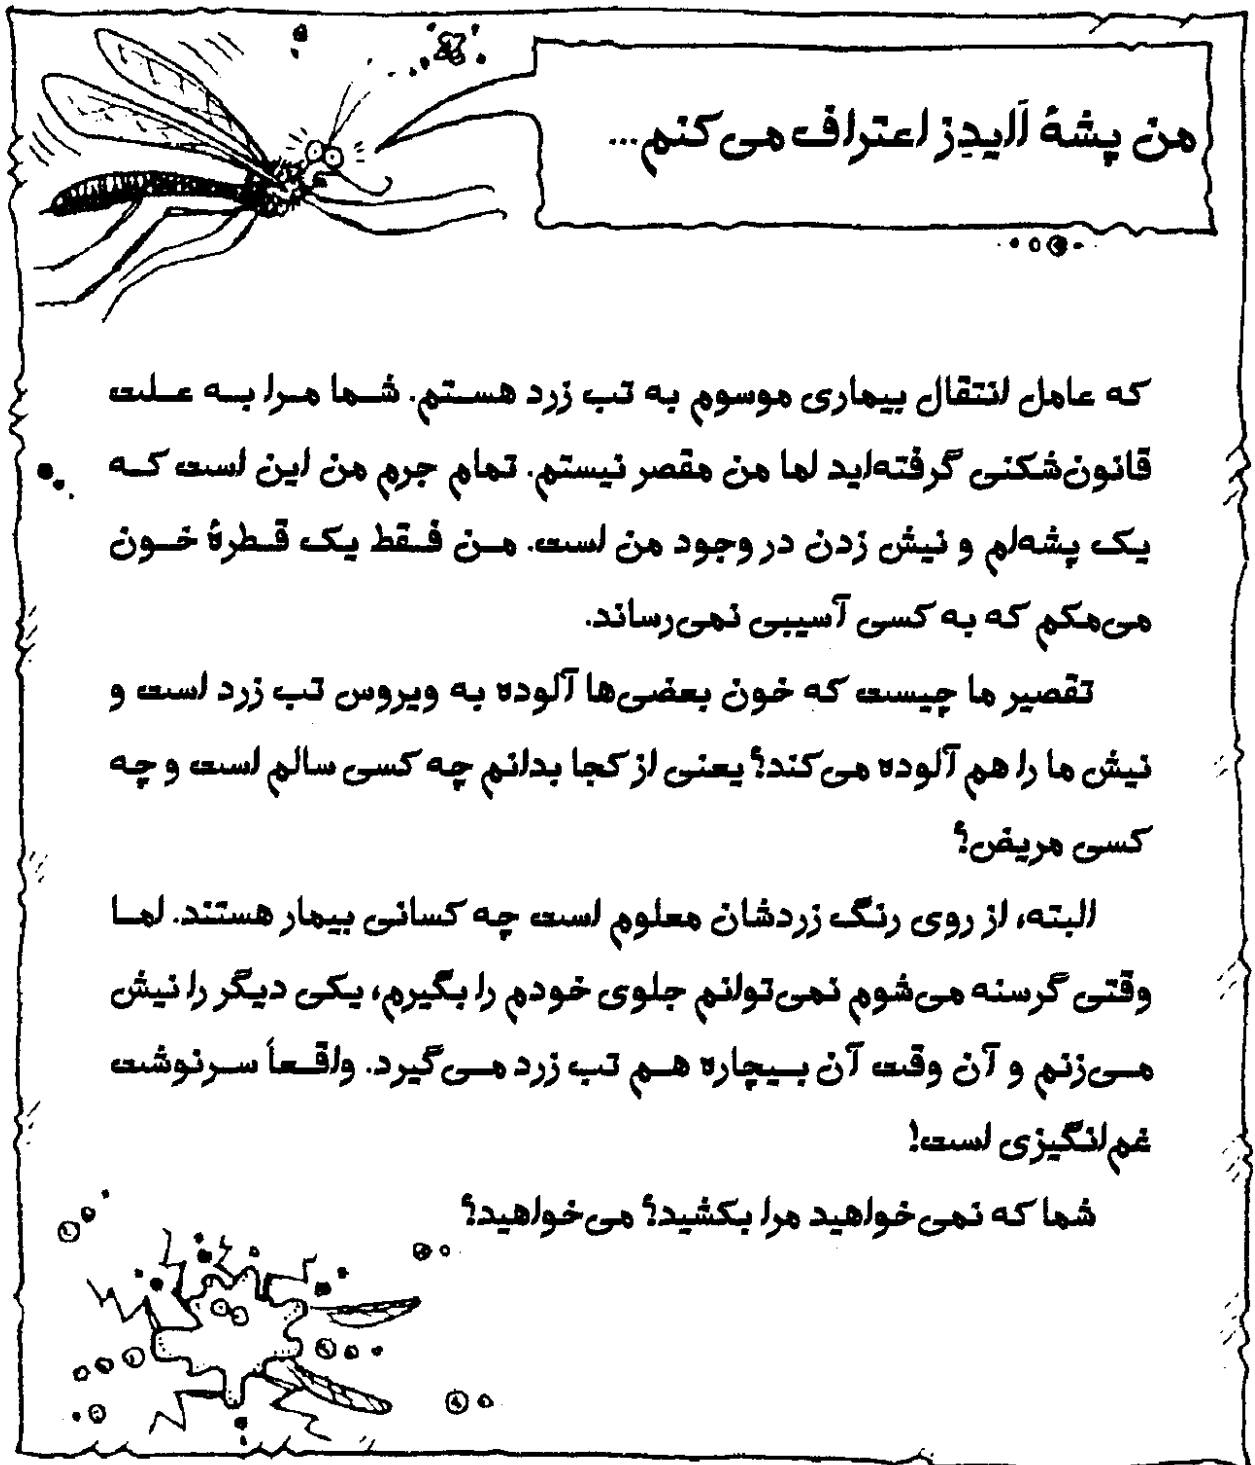 من پشهٔ اَایدِز اعتراف می‌کنم...
که عامل انتقال بیماری موسوم به تب زرد هستم. شما مرا به علت
قانون‌شکنی گرفته‌اید اما من مقصر نیستم. تمام جرم من این است که
یک پشه‌ام و نیش زدن در وجود من است. من فقط یک قطرهٔ خون
می‌مکم که به کسی آسیبی نمی‌رساند.
تقصیر ما چیست که خون بعضی‌ها آلوده به ویروس تب زرد است و
نیش ما را هم آلوده می‌کند؟ یعنی از کجا بدانم چه کسی سالم است و چه
کسی مریض؟
البته، از روی رنگ زردشان معلوم است چه کسانی بیمار هستند. اما
وقتی گرسنه می‌شوم نمی‌توانم جلوی خودم را بگیرم، یکی دیگر را نیش
می‌زنم و آن وقت آن بیچاره هم تب زرد می‌گیرد. واقعاً سرنوشت
غم‌انگیزی است!
شما که نمی‌خواهید مرا بکشید؟ می‌خواهید؟